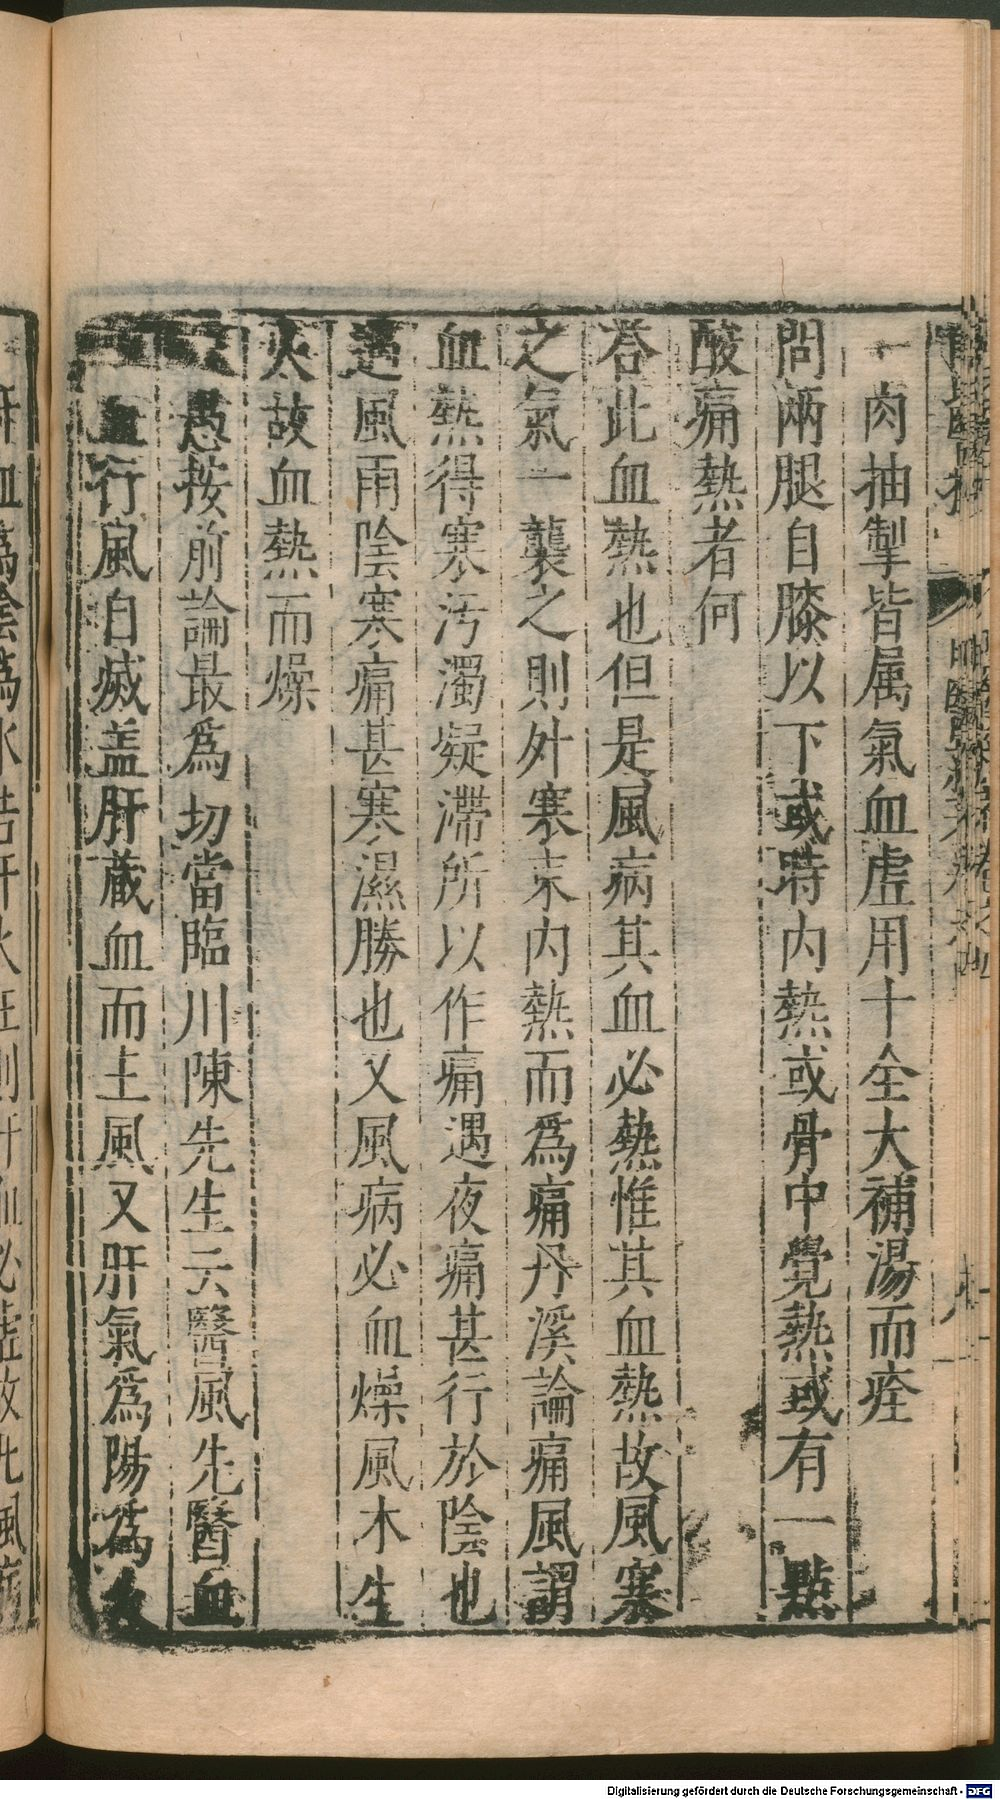 一肉抽掣皆属氣血虛用十全大補湯而痊
問兩腿自膝以下或時内熱或骨中覺熱或有一點
酸痛熱者何
荅此血熱也但是風病其血必熱惟其血熱故風寒
之氣一襲之則外寒束内熱而爲痛丹溪論痛風謂
血熱得寒汚濁凝滯所以作痛遇夜痛甚行於陰也
遇風雨陰寒痛甚寒濕勝也又風病必血燥風木生
火故血熱而燥
愚按前論最爲切當臨川陳先生云醫風先醫血
血行風自㓕盖肝藏血而主風又肝氣爲陽爲火
Digitalisierung gefördert durch die Deutsche Forschungsgemeinschaft - DFG